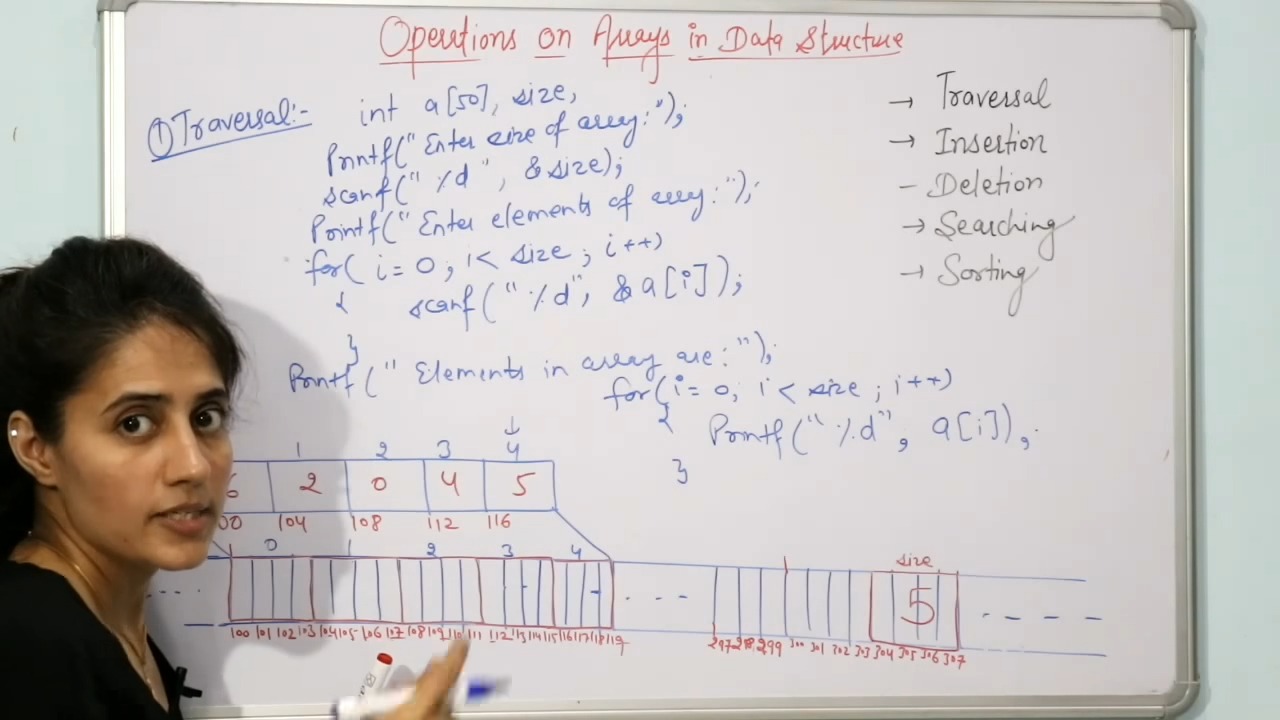 Operations on Arrays in Data Structure
① Traversal:-
int a[50], size,
Printf("Enter size of array:");
scanf("%d", &size);
Printf("Enter elements of array:");
for( i=0; i< size ; i++)
{ scanf("%d", &a[i]);
}
Printf(" Elements in array are:");
for(i=0; i< size ; i++)
{ Printf("%d", a[i]);
}
→ Traversal
→ Insertion
- Deletion
→ Searching
→ Sorting
1 2 3 4
6 2 0 4 5
00 104 108 112 116
0 1 2 3 4
size
5
100 101 102 103 104 105 106 107 108 109 110 111 112 113 114 115 116 117 118 119
297 298 299 300 301 302 303 304 305 306 307